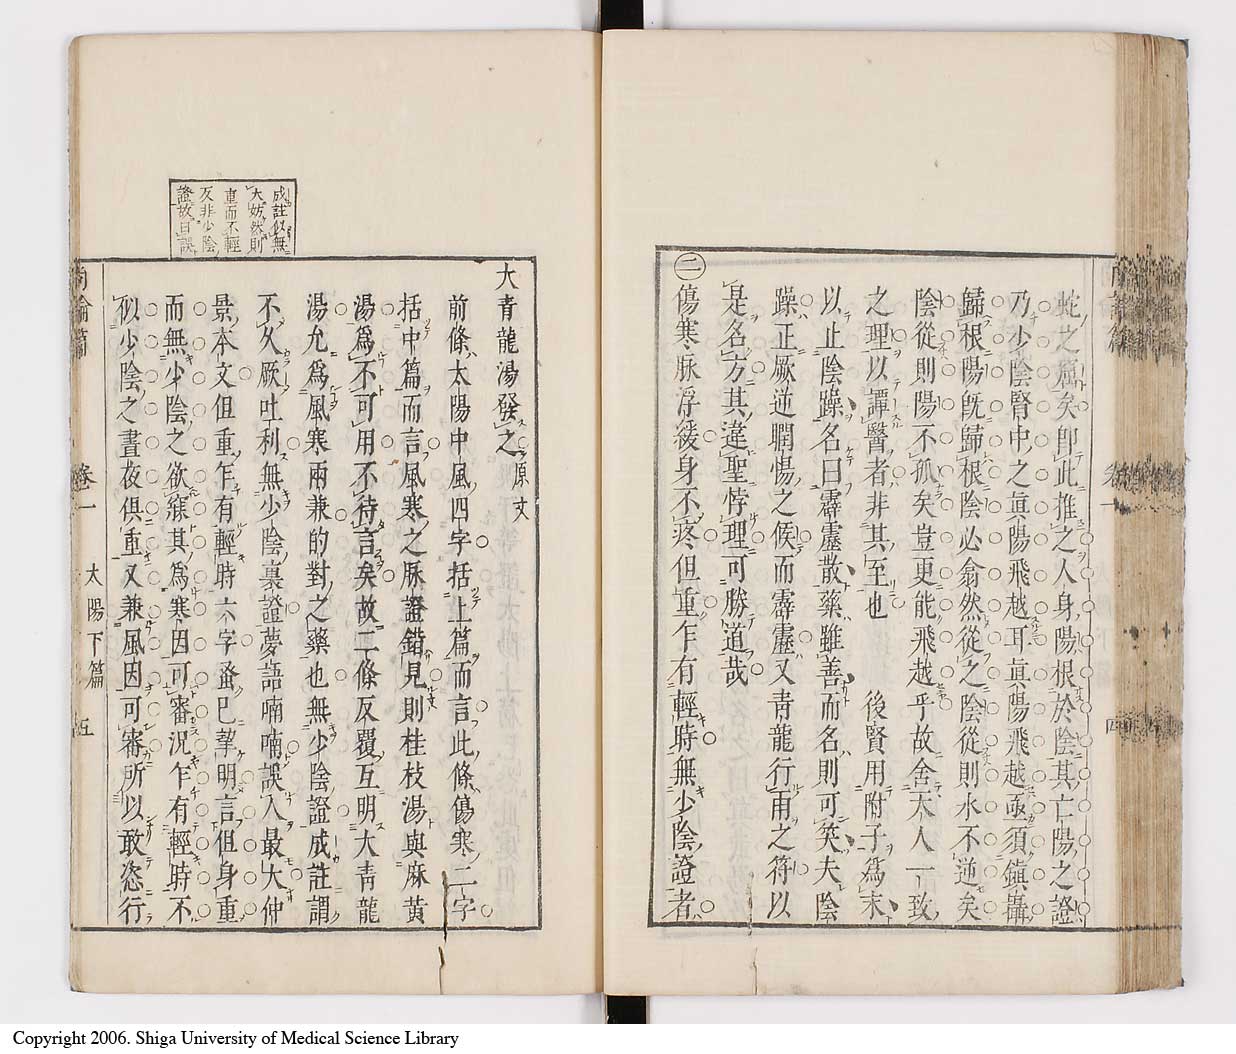 蛇之窟矣即此推之人身陽根於陰其亡陽之證
乃少陰腎中之眞陽飛越耳眞陽飛越亟須鎮攝
歸根陽既歸根陰必翕然從之陰從則水不逆矣
陰從則陽不孤矣豈更能飛越乎故舍天人一致
之理以譚醫者非其至也　後賢用附子爲末
以止陰躁名曰霹靂散藥雖善而名則可笑夫陰
躁正厥逆瞤惕之候而霹靂又青龍行雨之符以
是名方其違聖悖理可勝道哉
㊁傷寒脉浮緩身不疼但重乍有輕時無少陰證者
大青龍湯發之原文
前條太陽中風四字括上篇而言此條傷寒二字
括中篇而言風寒之脉證錯見則桂枝湯與麻黄
湯爲不可用不待言矣故二條反覆互明大青龍
湯允爲風寒兩兼的對之藥也無少陰證成註謂
不久厥吐利無少陰裏證夢語喃喃誤入最大仲
景本文但重乍有輕時六字蚤已挈明言但身重
而無少陰之欲寐其爲寒因可審況乍有輕時不
似少陰之晝夜俱重又兼風因可審所以敢恣行
成註似無
大妨然則
重而不輕
反非少陰
證故曰誤
尚論篇　卷二　太陽下篇　五
尚論篇　卷二　四
Copyright 2006. Shiga University of Medical Science Library